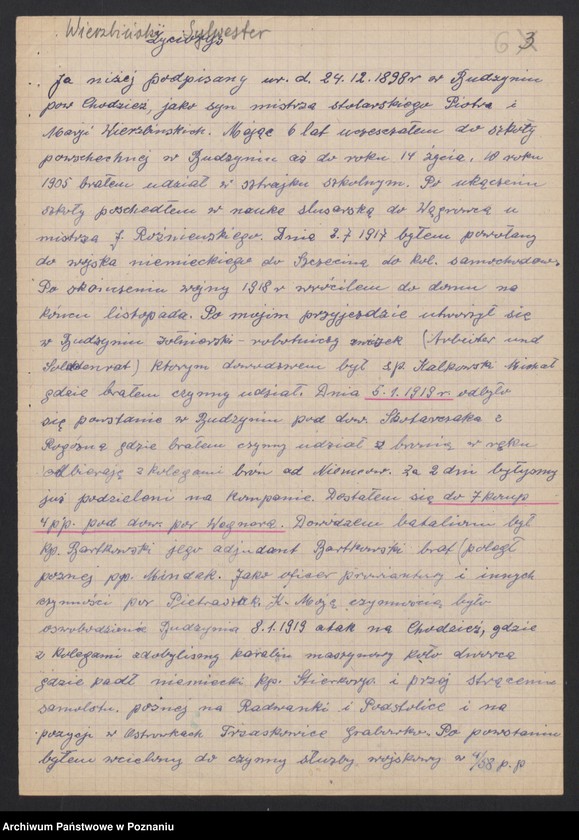 Wierzbiński Sylwester
życiorys
3
Ja niżej podpisany ur. d. 24.12.1898 r w Budzyniu
pow Chodzież, jako syn mistrza stolarskiego Piotra i
Maryi Wierzbinskich. Mając 6 lat uczeszczałem do szkoły
powschechnej w Budzyniu aż do roku 14 życia. W roku
1905 brałem udział w sztrajku szkolnym. Po ukączeniu
szkoły poschedłem w nauka slusarską do Wągrowca u
mistrza J. Roźnienskiego. Dnia 2.7 1917 byłem powołany
do wojska niemieckiego do Szczecina do kol. samochodow.
Po skoinczeniu wojny 1918 r wrócilem do domu na
końcu listopada. Po mojim przyjezdzie utworzył się
w Budzyniu żołnierski-robotniczy związek (Arbeiter und
Soldenrat) ktorym dowodzcem był s.p. Kalkowski Michał
gdzie brałem czynny udział. Dnia 5.1.1919 r. odbyło
się powstanie w Budzyniu pod dow. Skotarczaka z
Rogoźna gdzie brałem czynny udział z bronią w ręku
odbierają z kolegami broń od Niemcow. Za 2 dni byłyśmy
już podzieloni na Kompanie. Dostałem się do 7 komp
4 p/p. pod dow. por Wegnera. Dowodzcem bataliornu był
kp. Bartkowski jego adjudant Bartkowski brat (poległ
poznej pp. Mindak. Jako oficer prowiantowy i innych
czynności por Pietraszak K. Moją czynnoscią było
oswobodzenie Budzynia 8.1.1919 atak na Chodzież, gdzie
z kolegami zdobylismy karabin maszynowy koło dworca
gdzie padł niemiecki kp. i przej strącenie
samolotu. poznej na Radwanki i Podstolice i na
pozycji w Ostrowkach Trzaskowice Grabowko. Po powstaniu
byłem wcielony do czynny służby wojskowy w 4/58 p.p
Archiwum Państwowe w Poznaniu